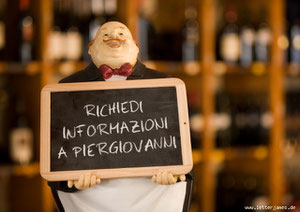 RICHIEDI
INFORMAZIONI
A PIERGIOVANNI
www.letterjames.de